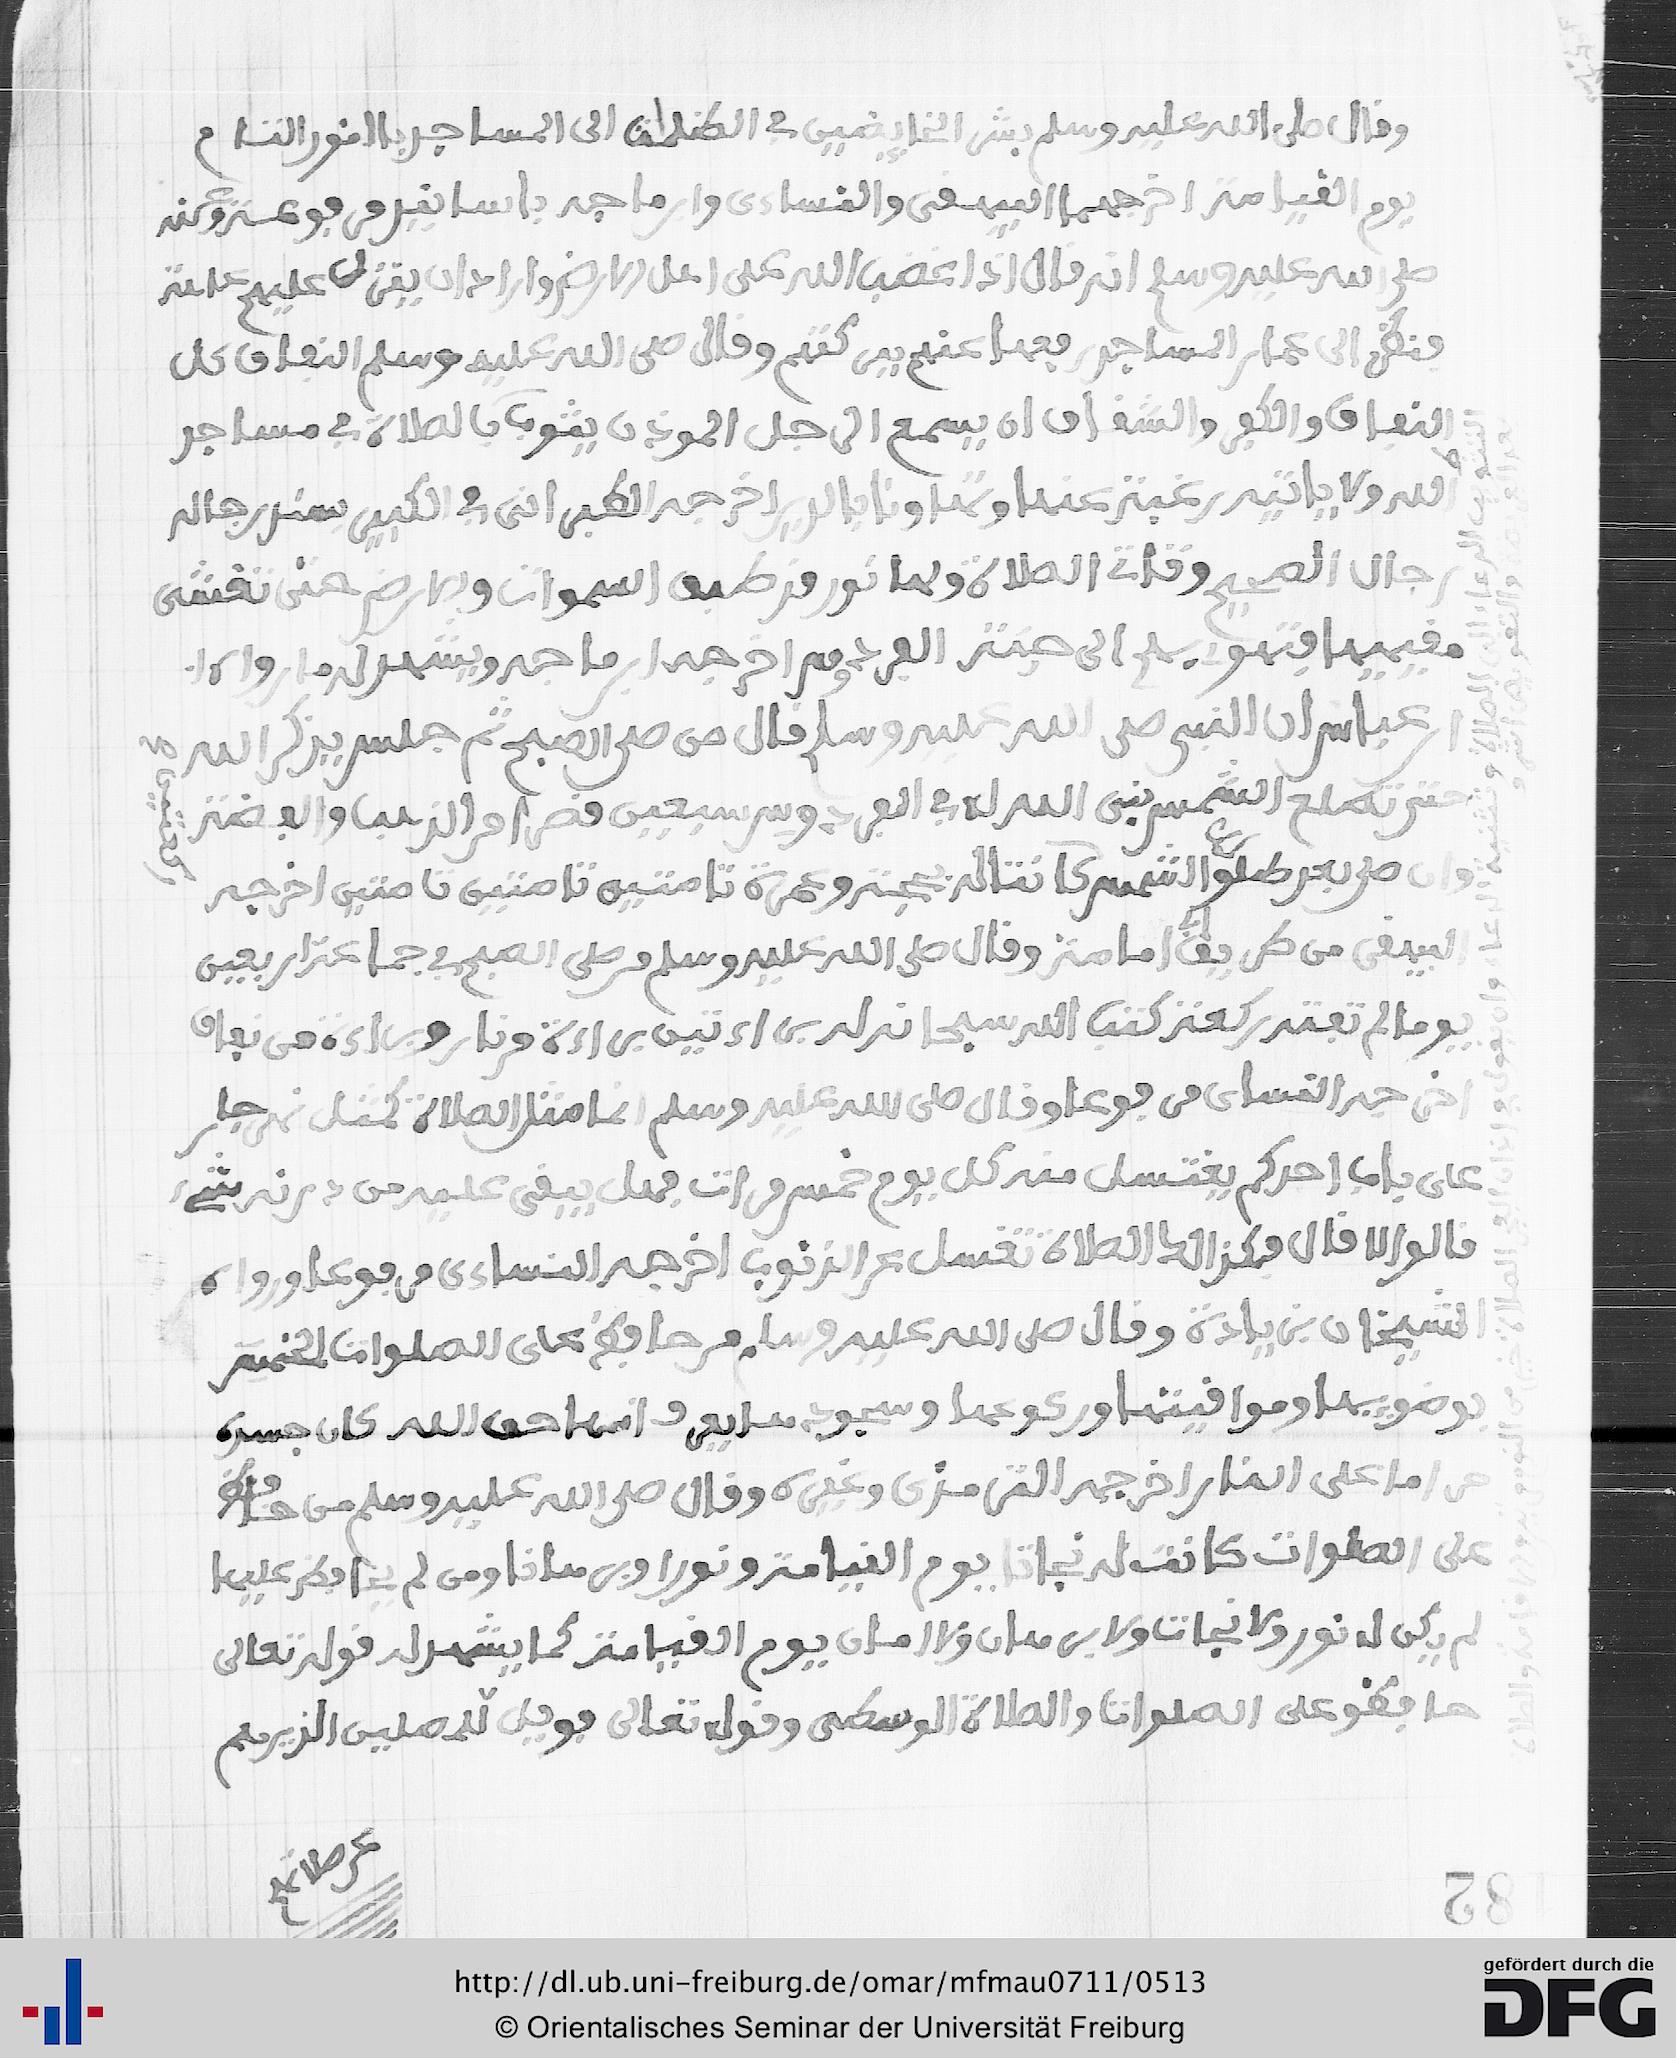 وقال صلى الله عليه وسلم بشر الخايضين في الظلمات الى المساجد بالنور التام
يوم القيامة اخرجهما البيهقي والنساءى وابن ماجه باسانيد مرفوعة وعنه
صلى الله عليه وسلم انه قال اذا غضب الله على اهل الارض واراد ان ينزل عليهم عاهة
فنظر الى عمار المساجد رفعها عنهم ببركتهم وقال صلى الله عليه وسلم النفاق كل
النفاق والكفر والشقاق ان يسمع الرجل المؤذن يثوب بالصلاة في مساجد
الله ولا ياتيه رغبة عنها وتهاونا بالدين اخرجه الطبراني في الكبير بسند رجاله
رجال الصحيح وقات الصلاة ولها نور قد طبق السموات والارض حتى تغشى
مقيمها فتهوديه الى جنة الفردوس اخرجه ابن ماجه ويشهد له ما رواه
ابن عباس ان النبي صلى الله عليه وسلم قال من صلى الصبح ثم جلس يذكر الله
حتى تطلع الشمس بنى الله له في الفردوس سبعين قصرا من الذهب والفضة
وان صلى بعد طلوع الشمس كانت له بحجة وعمرة تامتين تامتين تامتين اخرجه
البيهقي من طريق امامة وقال صلى الله عليه وسلم من صلى الصبح في جماعة اربعين
يوما لم تفته ركعة كتب الله سبحانه له براءتين براءة من نار وبراءة من نفاق
اخرجه النساى مرفوعا وقال صلى الله عليه وسلم انما مثل الصلاة كمثل نهر جار
على باب احدكم يغتسل منه كل يوم خمس مرات فهل يبقى عليه من درنه شيء
قالوا لا قال فكذالك الصلاة تغسل من الذنوب اخرجه النساءى مرفوعا ورواه
الشيخان بزيادة وقال صلى الله عليه وسلم من حافظ على الصلوات الخمس
بوضوءيها ومواقيتها وركوعها وسجودها يعرف انها حق الله كان جسده
حراما على النار اخرجه الترمذى وغيره وقال صلى الله عليه وسلم من حافظ
على الصلوات كانت له نجاتا يوم القيامة ونورا وبرهانا ومن لم يحافظ عليها
لم يكن له نور ولا نجات ولا برهان ولا امان يوم القيامة كما يشهد له قوله تعالى
حافظو على الصلوات والصلاة الوسطى وقوله تعالى فويل للمصلين الذين هم
عن صلاتهم
182
http://dl.ub.uni-freiburg.de/omar/mfmau0711/0513
© Orientalisches Seminar der Universität Freiburg
gefördert durch die
DFG